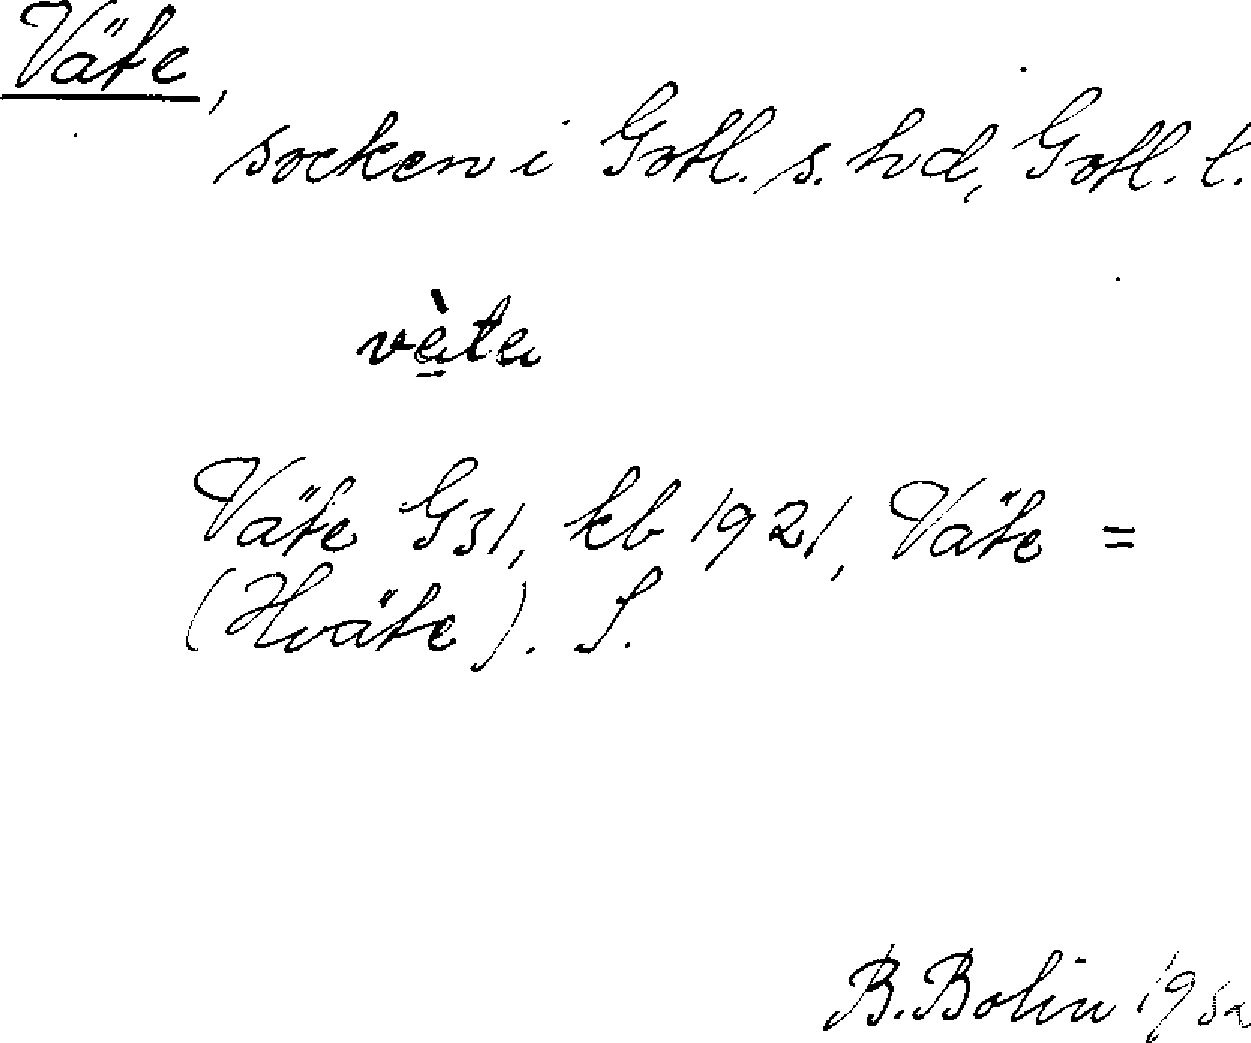 Väte,
socken i Gotl. s. hd, Gotl. l.
vètα
Väte G31, kb 1921, Väte =
(Hväte). S.
B. Bolin 1952